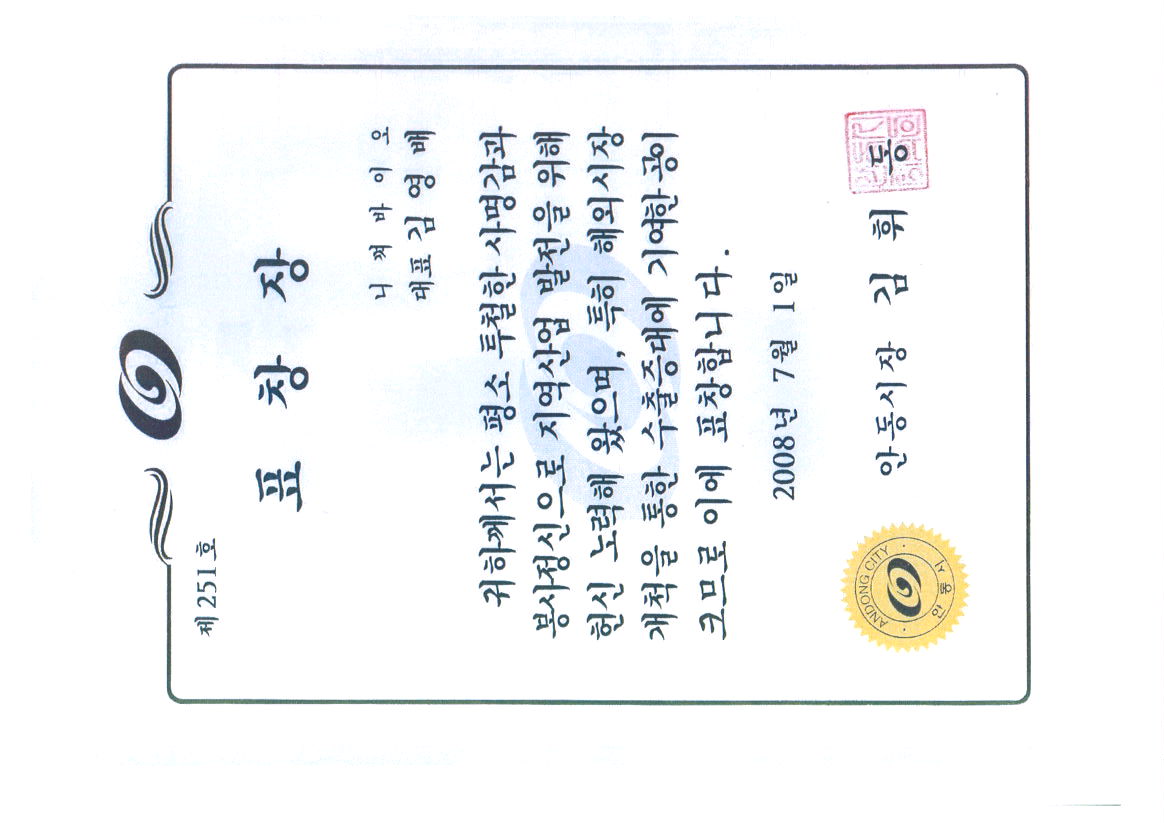 제 251호
표 창 장
니 껴 바 이 오
대표 김 영 배
귀하께서는 평소 투철한 사명감과
봉사정신으로 지역산업 발전을 위해
헌신 노력해 왔으며, 특히 해외시장
개척을 통한 수출증대에 기여한 공이
크므로 이에 표창합니다.
2008년 7월 1일
안동시장 김 휘 동
ANDONG CITY
안동시